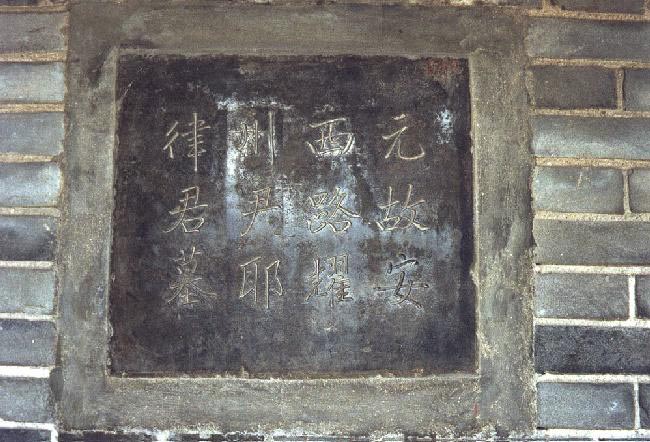 元故安
西路耀
州尹耶
律君墓